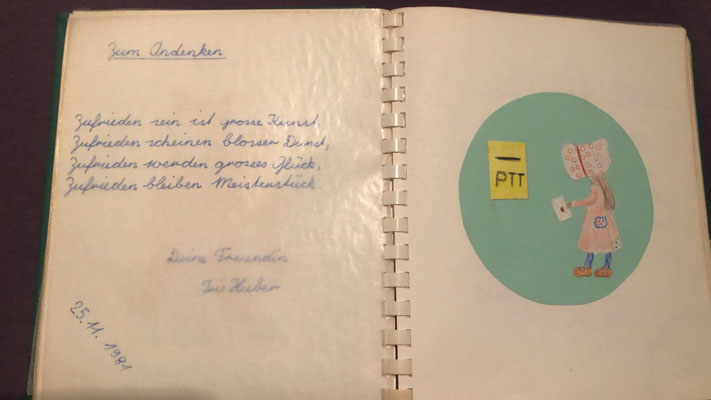 Zum Andenken
Zufrieden sein ist grosse Kunst,
Zufrieden scheinen blosser Dunst,
Zufrieden werden grosses Glück,
Zufrieden bleiben Meisterstück.
Deine Freundin
Iris Huber
25.11.1981
PTT